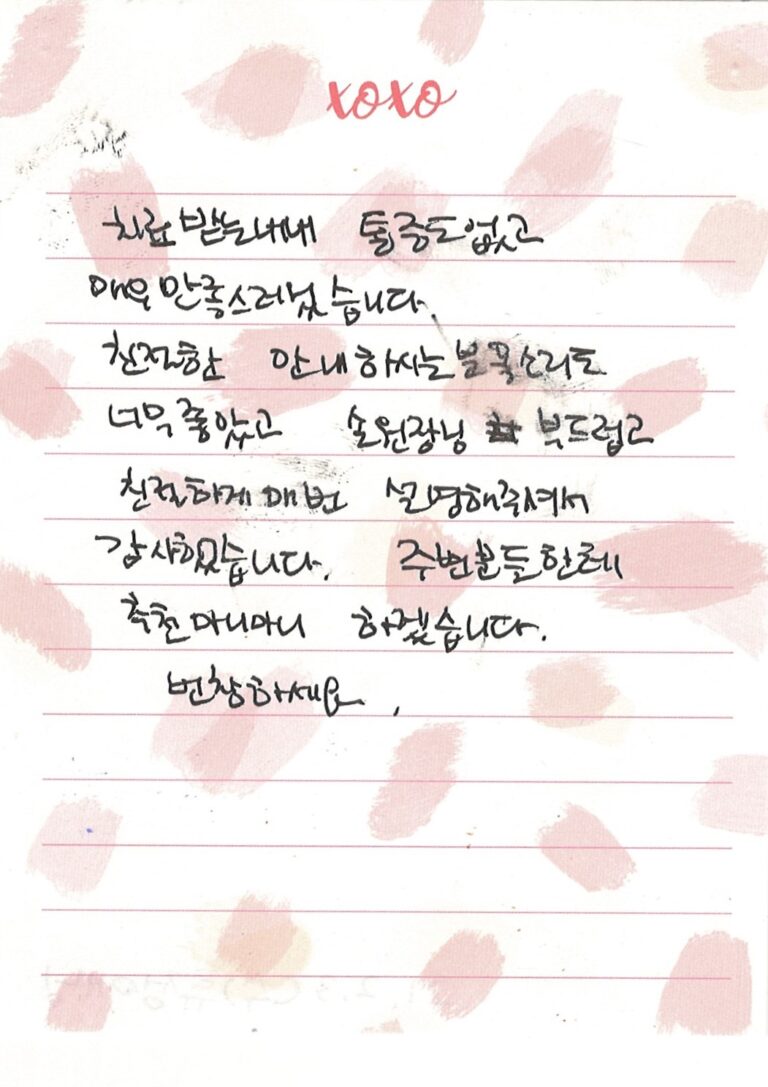 xoxo
치료 받는내내 통증도없고
매우 만족스러웠습니다.
친절한 안내하시는분 목소리도
너무 좋았고 손원장님 부드럽고
친절하게 매번 설명해주셔서
감사했습니다. 주변분들한테
추천 마니마니 하겠습니다.
번창하세요.